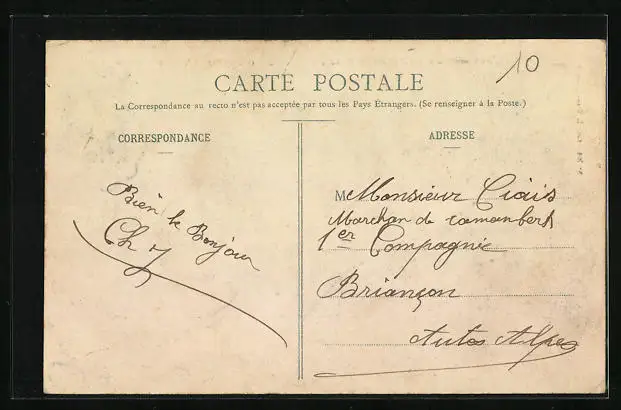 10
CARTE POSTALE
La Correspondance au recto n'est pas acceptée par tous les Pays Étrangers. (Se renseigner à la Poste.)
CORRESPONDANCE
ADRESSE
Bien le Bonjour
Ch
M Monsieur Ciais
Marchan de camanbert
1er Compagnie
Briançon
Autes Alpes